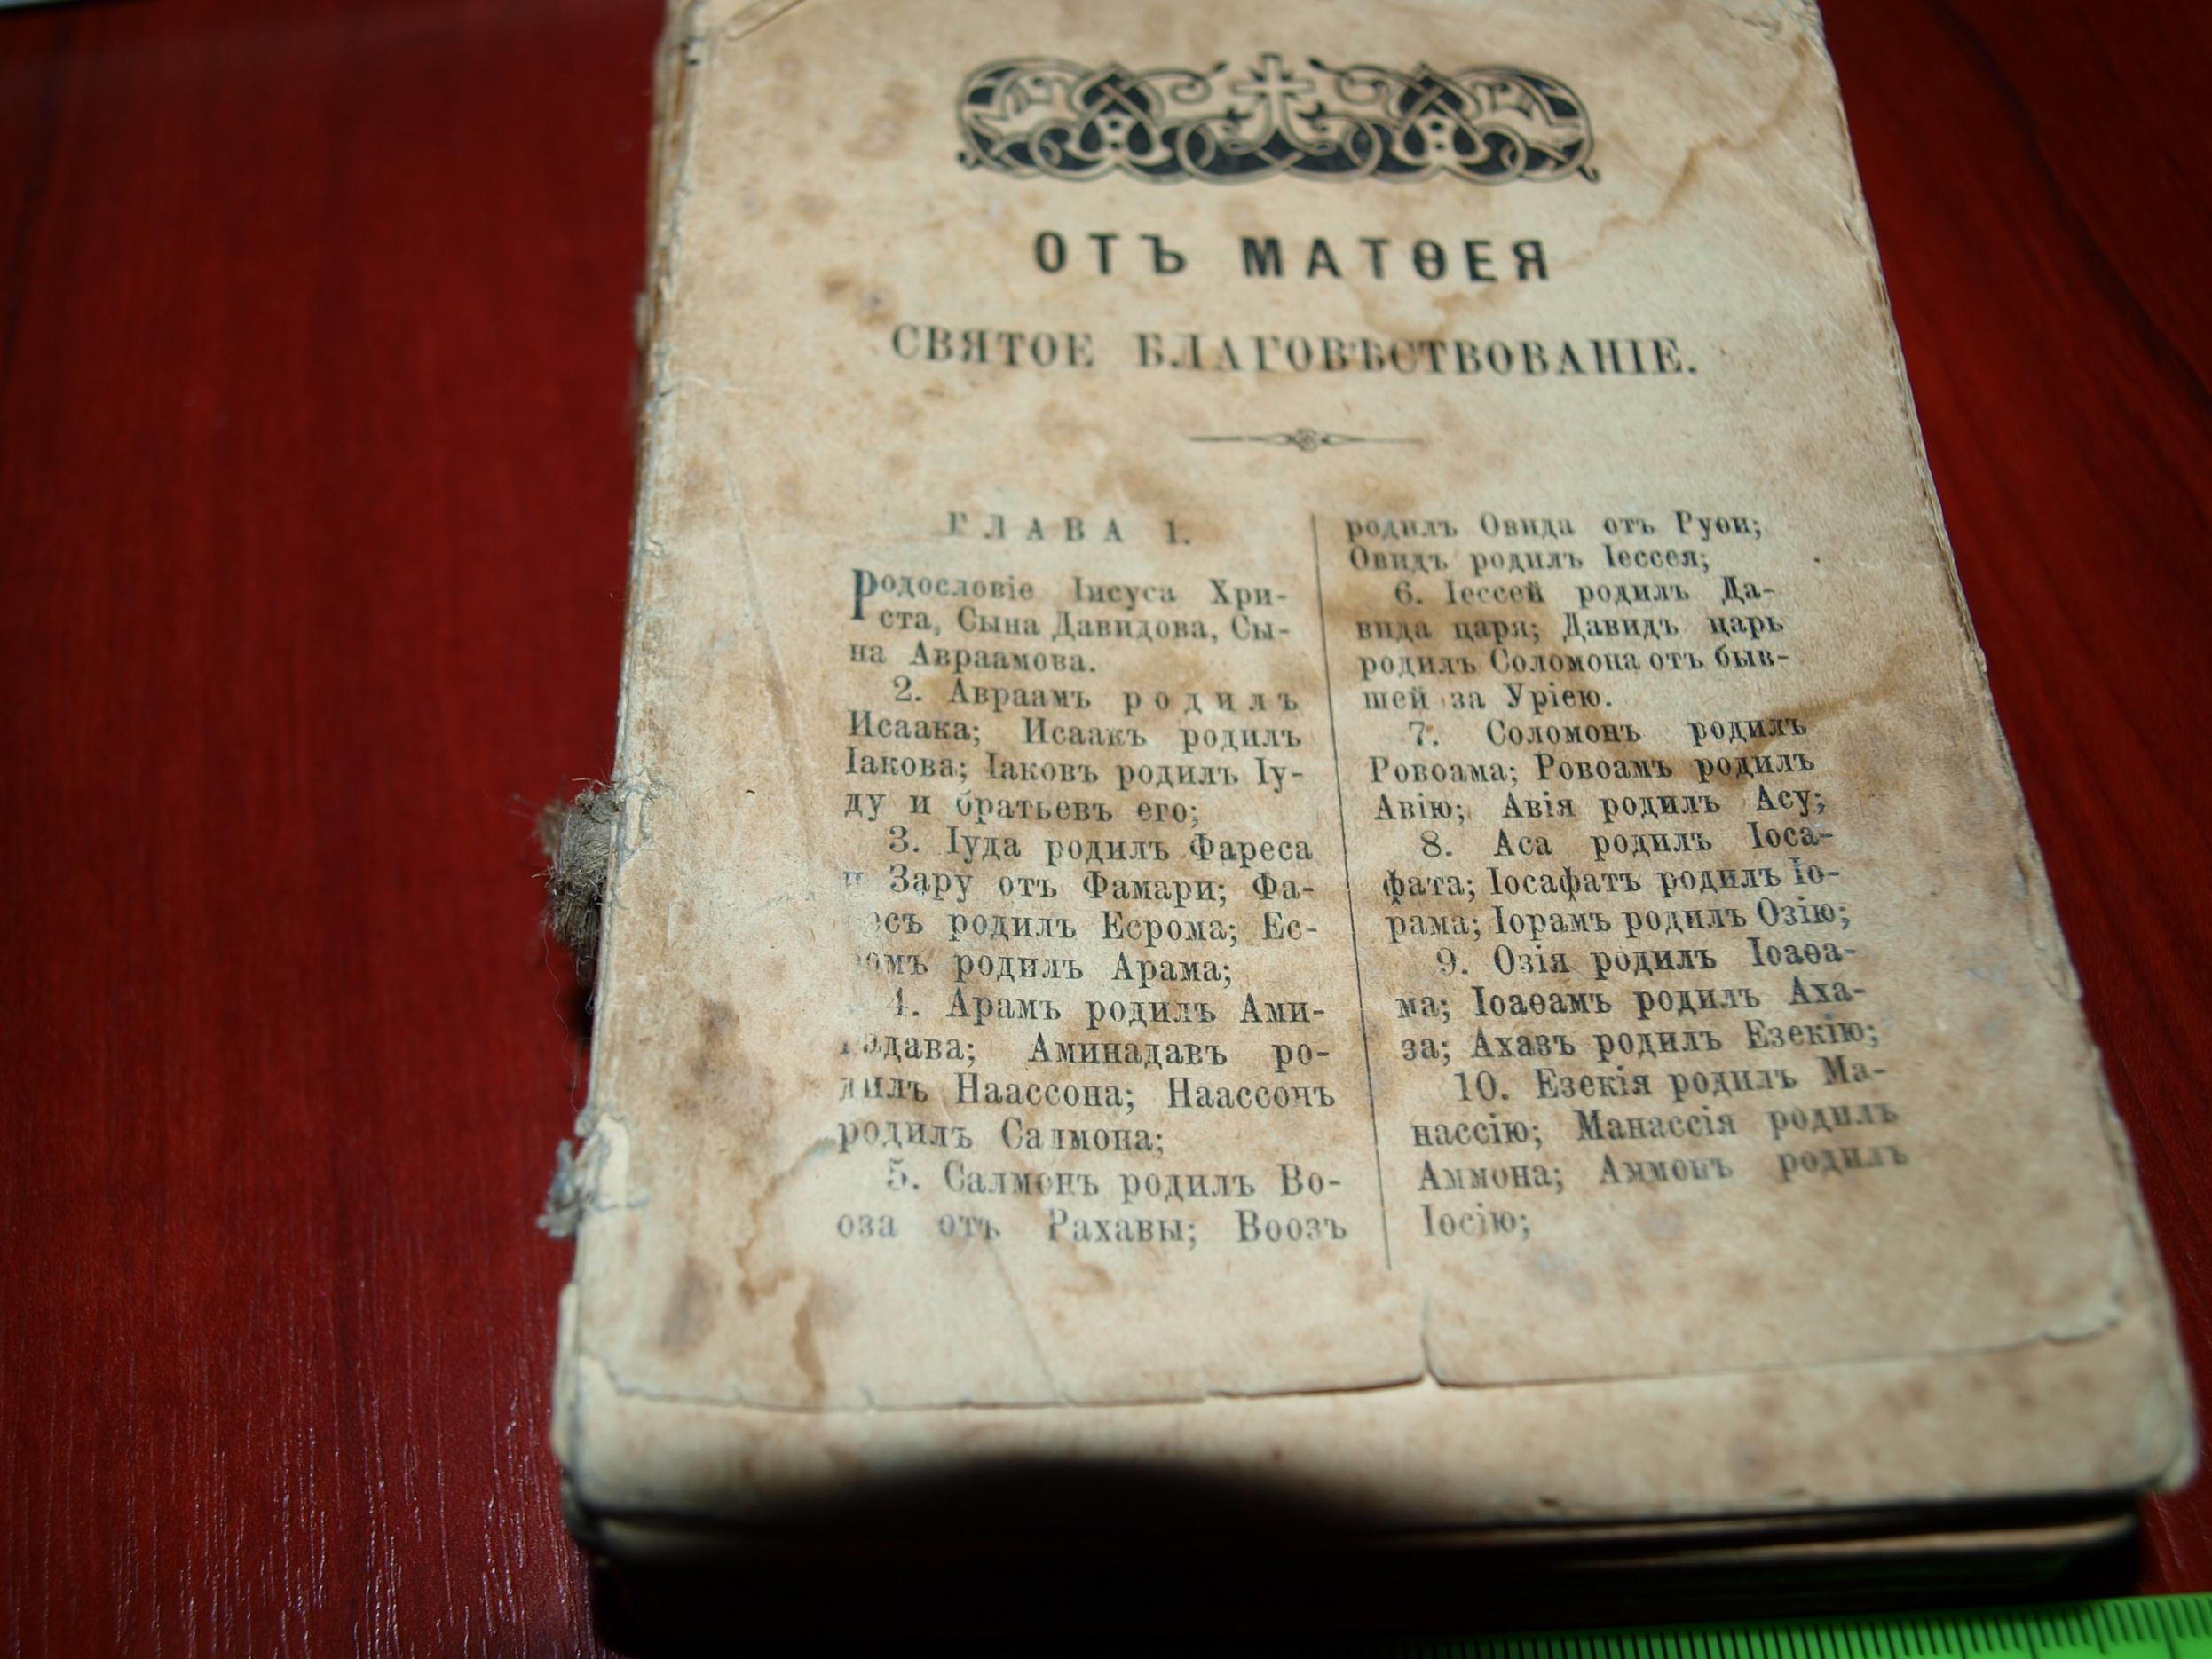 ОТЪ МАТѲЕЯ
СВЯТОЕ БЛАГОВѢСТВОВАНІЕ.
ГЛАВА 1.
Родословіе Іисуса Хри-
ста, Сына Давидова, Сы-
на Авраамова.
2. Авраамъ родилъ
Исаака; Исаакъ родилъ
Іакова; Іаковъ родилъ Іу-
ду и братьевъ его;
3. Іуда родилъ Фареса
и Зару отъ Фамари; Фа-
есъ родилъ Есрома; Ес-
омъ родилъ Арама;
4. Арамъ родилъ Ами-
адава; Аминадавъ ро-
дилъ Наассона; Наассонъ
родилъ Салмона;
5. Салмонъ родилъ Во-
оза отъ Рахавы; Воозъ
родилъ Овида отъ Руѳи;
Овидъ родилъ Іессея;
6. Іессей родилъ Да-
вида царя; Давидъ царь
родилъ Соломона отъ быв-
шей за Уріею.
7. Соломонъ родилъ
Ровоама; Ровоамъ родилъ
Авію; Авія родилъ Асу;
8. Аса родилъ Іоса-
фата; Іосафатъ родилъ Іо-
рама; Іорамъ родилъ Озію;
9. Озія родилъ Іоаѳа-
ма; Іоаѳамъ родилъ Аха-
за; Ахазъ родилъ Езекію;
10. Езекія родилъ Ма-
нассію; Манассія родилъ
Аммона; Аммонъ родилъ
Іосію;